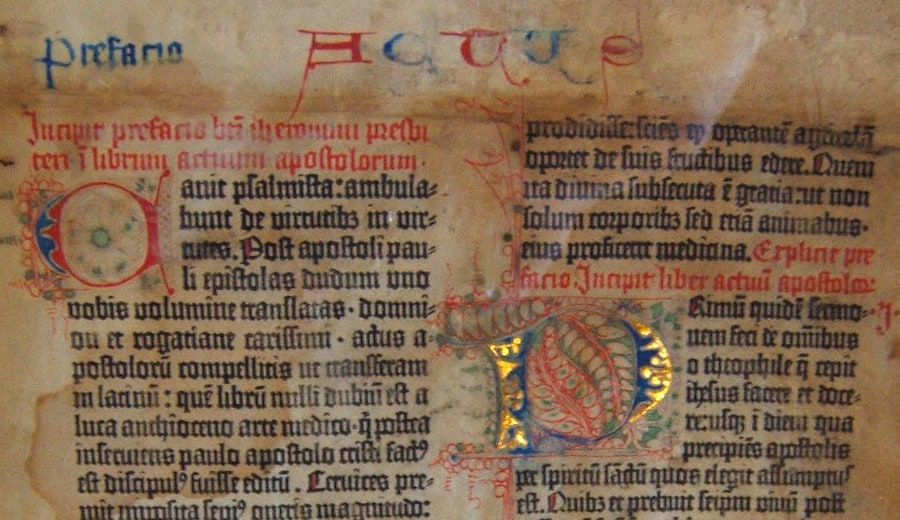 Prefacio
ACTUS
Incipit prefacio bti iheronimi presbi
teri ī librum actuum apostolorum.
Canit psalmista: ambula-
bunt de virtutibz in vir-
tutes. Post apostoli pau-
li epistolas dudum uno
vobis volumine translatas. domni-
on et rogatiane carissimi. actus a-
postolorū compellitis ut transferam
in latinū: quē librū nulli dubiū est a
luca anthioceno arte medico. q̄ postea
inserviens paulo apostolo cristi factꝰ
est discipulꝰ fuisse editū. Cervices pre-
mit imposita sepiꝰ oneris magnitudo:
prodidisse: sciēs ꝙ optantē
oportet de suis fructibus edere. Quem
ita divina subsecuta ē gratia: ut non
solum corporibz sed etiā animabus.
eius proficeret medicina. Explicit pre
facio. Incipit liber actuū apostolor
PRimū quidē sermo- .I.
nem feci de omībus
o theophile q̄ cepit
ihesus facere et doce-
re: usqz ī diem qua
precipiēs apostolis
per spiritū sāctū quos elegit assumptus
est. Quibz et prebuit seipm vivū post